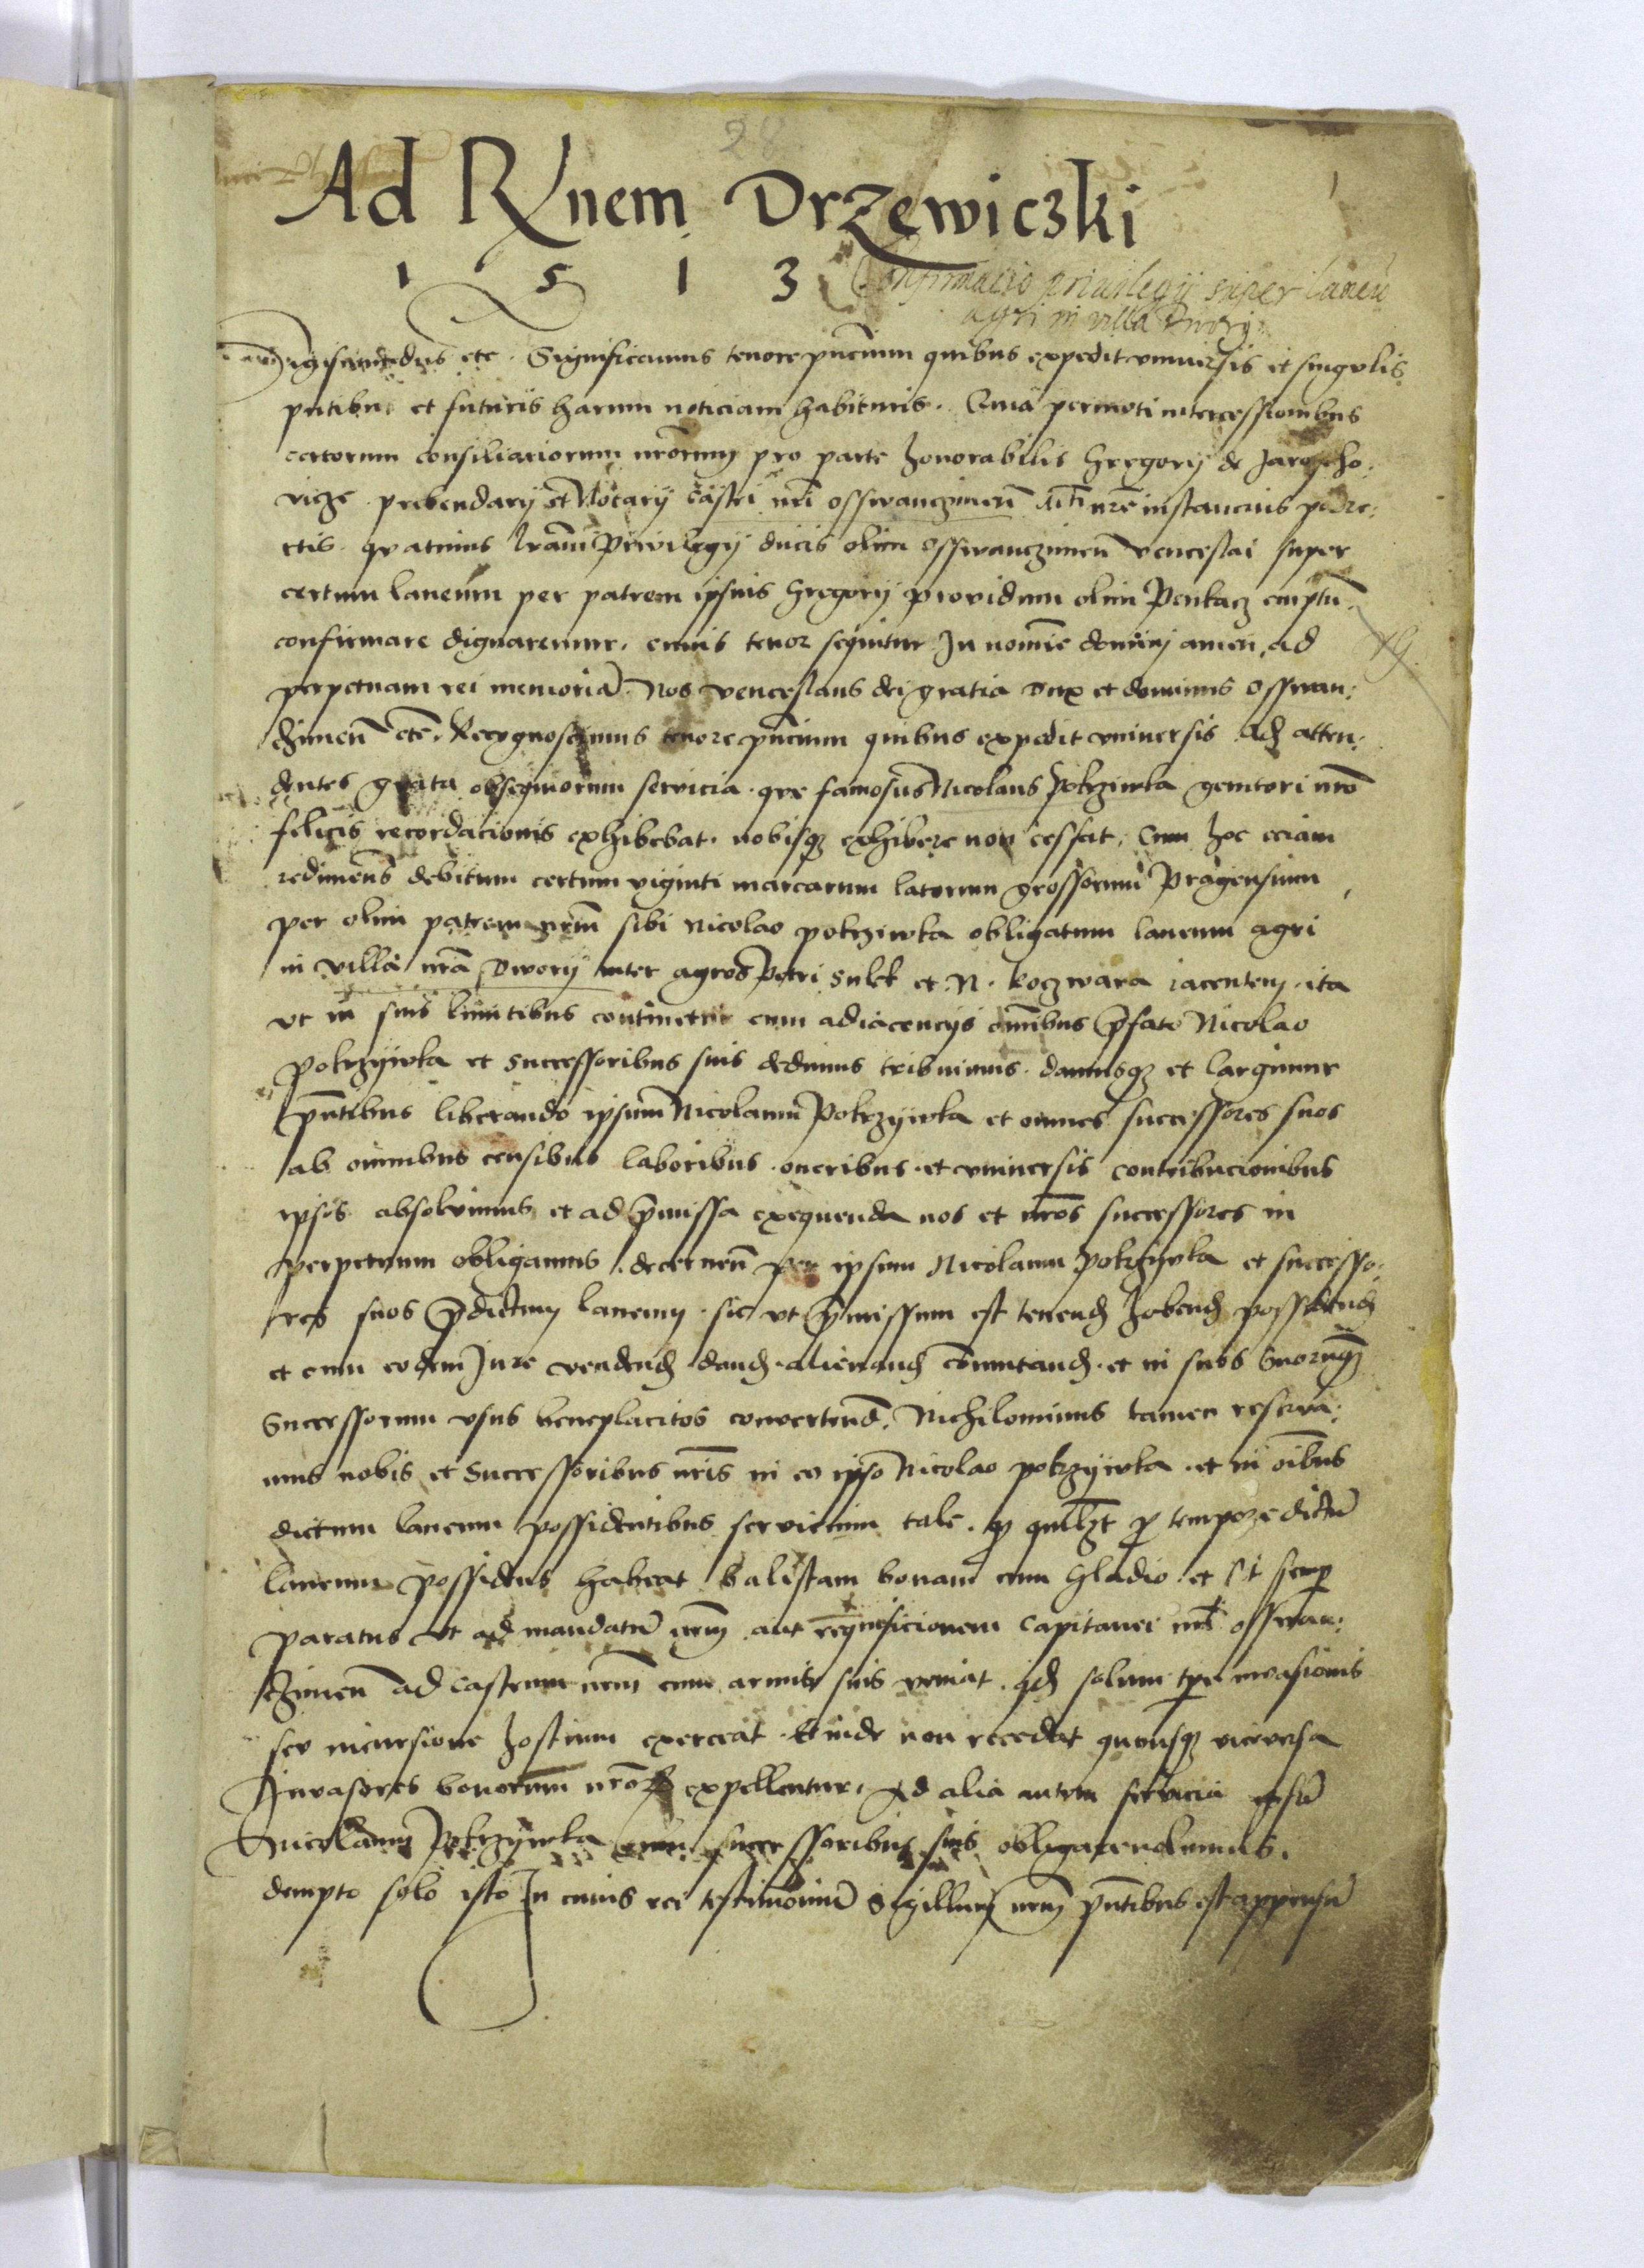 28
1
Ad Rnem Drzewiczki
1 5 1 3
Confirmacio priuilegij super laneū
agri in villa Dwory
Sigismundus etc. Significamus tenore pñcium quibus expedit vniuersis et singulis
pñtibus et futuris harum noticiam habituris. Quia permoti intercessionibus
certorum consiliariorum nrorum pro parte honorabilis Gregorij de Jaroscho:
vicze prebendarij et Notarij castri nrī osswanczimeñ nre instancius
ctis. quatinus lrām priuilegij ducis olim osswanczimeñ venceslai super
certum laneum per patrem ipsius Gregorij prouidum olim Penkacz emptū
confirmare dignaremur. cuius tenor sequitur In nomīe dominj amen. ad
perpetuam rei memoriā. Nos venceslaus dei gratia dux et dominus osswan:
czimeñ etc̄. Recognoscimus tenore pñcium quibus expedit vniuersis atten:
dentes grata obsequiorum seruicia que famosus Nicolaus Pokrziwka genitori nrō
felicis recordacionis exhibebat. nobisqz exhibere non cessat. Cum hoc eciam
redimens debitum certum viginti marcarum latorum grossorum pragensium
per olim patrem nrm̄ sibi Nicolao pokrziwka obligatum laneum agri
in villa nrā Dworij inter agros Petri Sulek et N. koczwara iacentem. ita
vt in suis limitibus continetur cum adiacencijs om̄ibus p̄fato Nicolao
pokrzywka et successoribus suis dedimus tribuimus. damusqz et largimur
p̄ntibus liberando ipsum Nicolaum Pokrzywka et omnes successores suos
ab omnibus censibus laboribus. oneribus. et vniuersis contribucionibus
ipsos absoluimus et ad p̄missa exequenda nos et nrōs successores in
perpetuum obligamus. decerneñ per ipsum Nicolaum pokrzywka et successo:
res suos p̄dictum laneum. sic vt p̄missum est tenend habend possidend
et cum eodem Jure vendend dand. alienand cōmutand. et in suos Suorumqz
Successorum vsus beneplacitos conuertend. Nichilominus tamen reserua:
mus nobis et Successoribus nrīs in eo ipso Nicolao pokrzywka. et in oībus
dictum laneum possidentibus seruicium tale. qz quilibet p tempore dictū
laneum possidens habeat balistam bonam cum gladio. et sit semp
paratus vt ad mandatū nrm̄ aut requisicionem capitanei nrī osswan:
czimeñ ad castrum nrm̄ cum armis suis veniat. qd solum tpe inuasionis
seu incursione hostium exerceat. Et inde non recedat quousqz viceversa
Inuasores bonorum nrōr expellentur. Ad alia autem seruicia ipsū
Nicolaum Pokrzywka cum successoribus suis obligare nolumus.
dempto solo isto In cuius rei testimoniū sigillum nrm̄ p̄ntibus est appensū